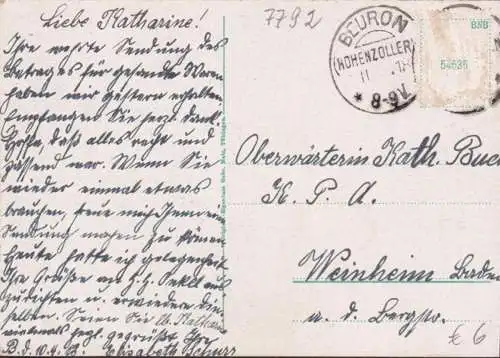 7792
Liebe Katharine!
Ihre werte Sendung des
Betrages für gesandte Waren
haben wir gestern erhalten
Empfangen Sie herzl. Dank.
Hoffe, daß alles recht und
passend war. Wenn Sie
wieder einmal etwas
brauchen, freue mich Ihnen eine
Sendung machen zu können
Heute hatte ich gelegenheit
Ihre Grüße an H. H. Onkel aus
zurichten u. erwiedere die
selben. Seien Sie lb. Katharine
vielmals herzl. gegrüßt Ihre
B. d. 10.4. Elisabeth Schurr
BEURON
(HOHENZOLLER)
11
* 8-9V.
BNB
54635
Oberwärterin Kath. Buc
K. P. A.
Weinheim Baden
a. d. Bergstr.
€ 6